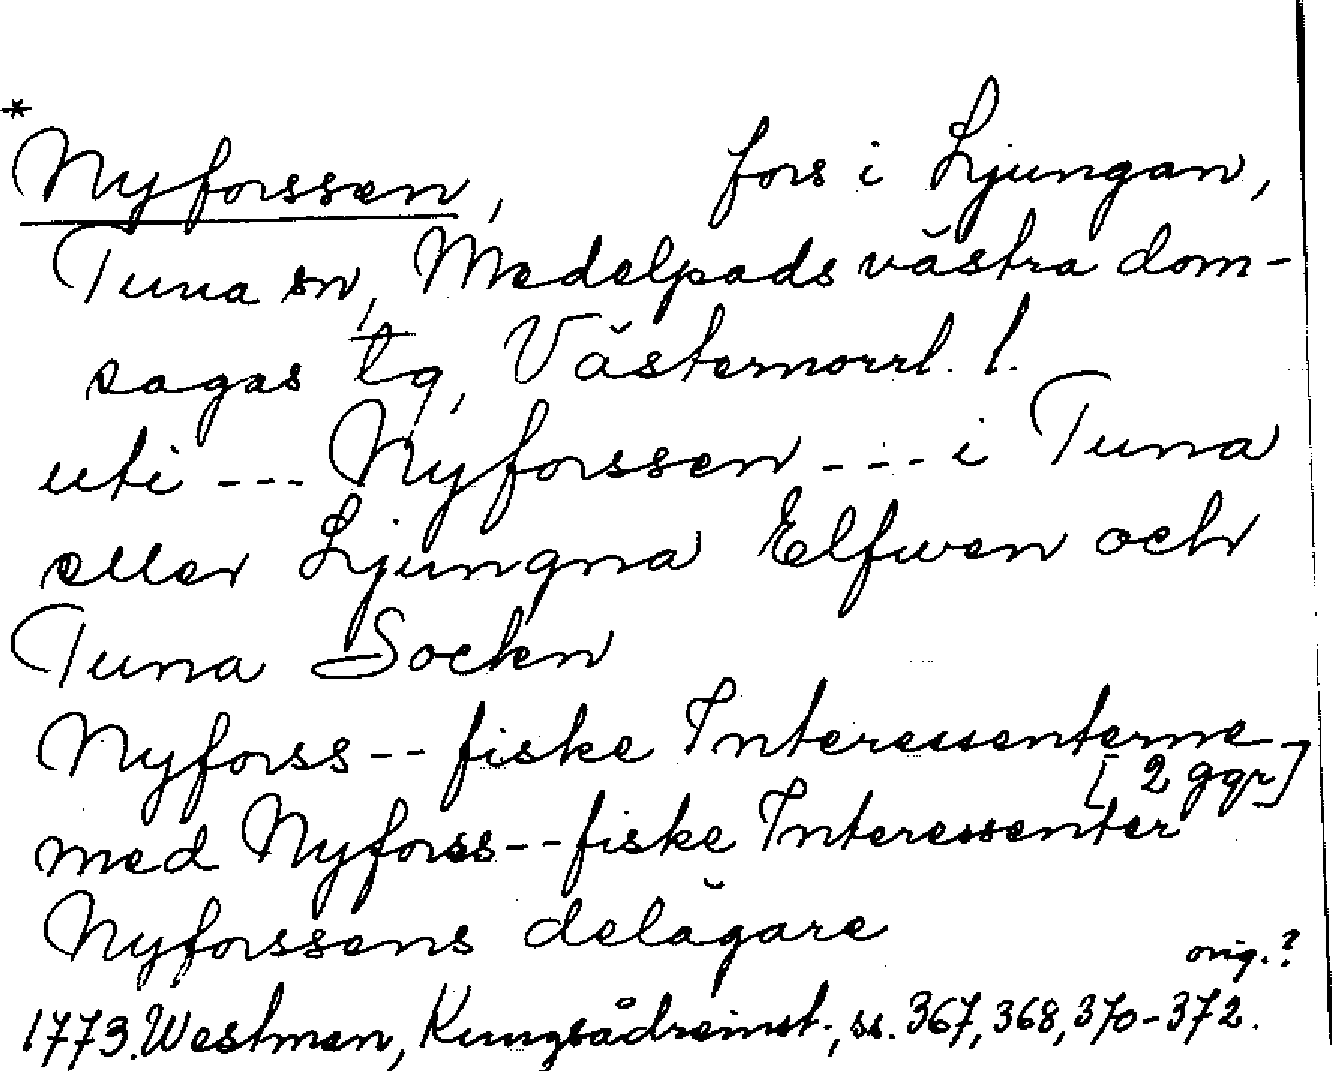 *
Nyforssen, fors i Ljungan,
Tuna sn, Medelpads västra dom-
sagas tg, Västernorrl. l.
uti --- Nyforssen --- i Tuna
eller Ljungna Elfwen och
Tuna Sockn
Nyforss -- fiske Interessenterne
[2 ggr]
med Nyforss -- fiske Interessenter
Nyforssens delägare
orig.?
1773. Westman, Kungsådreinst., ss. 367, 368, 370-372.